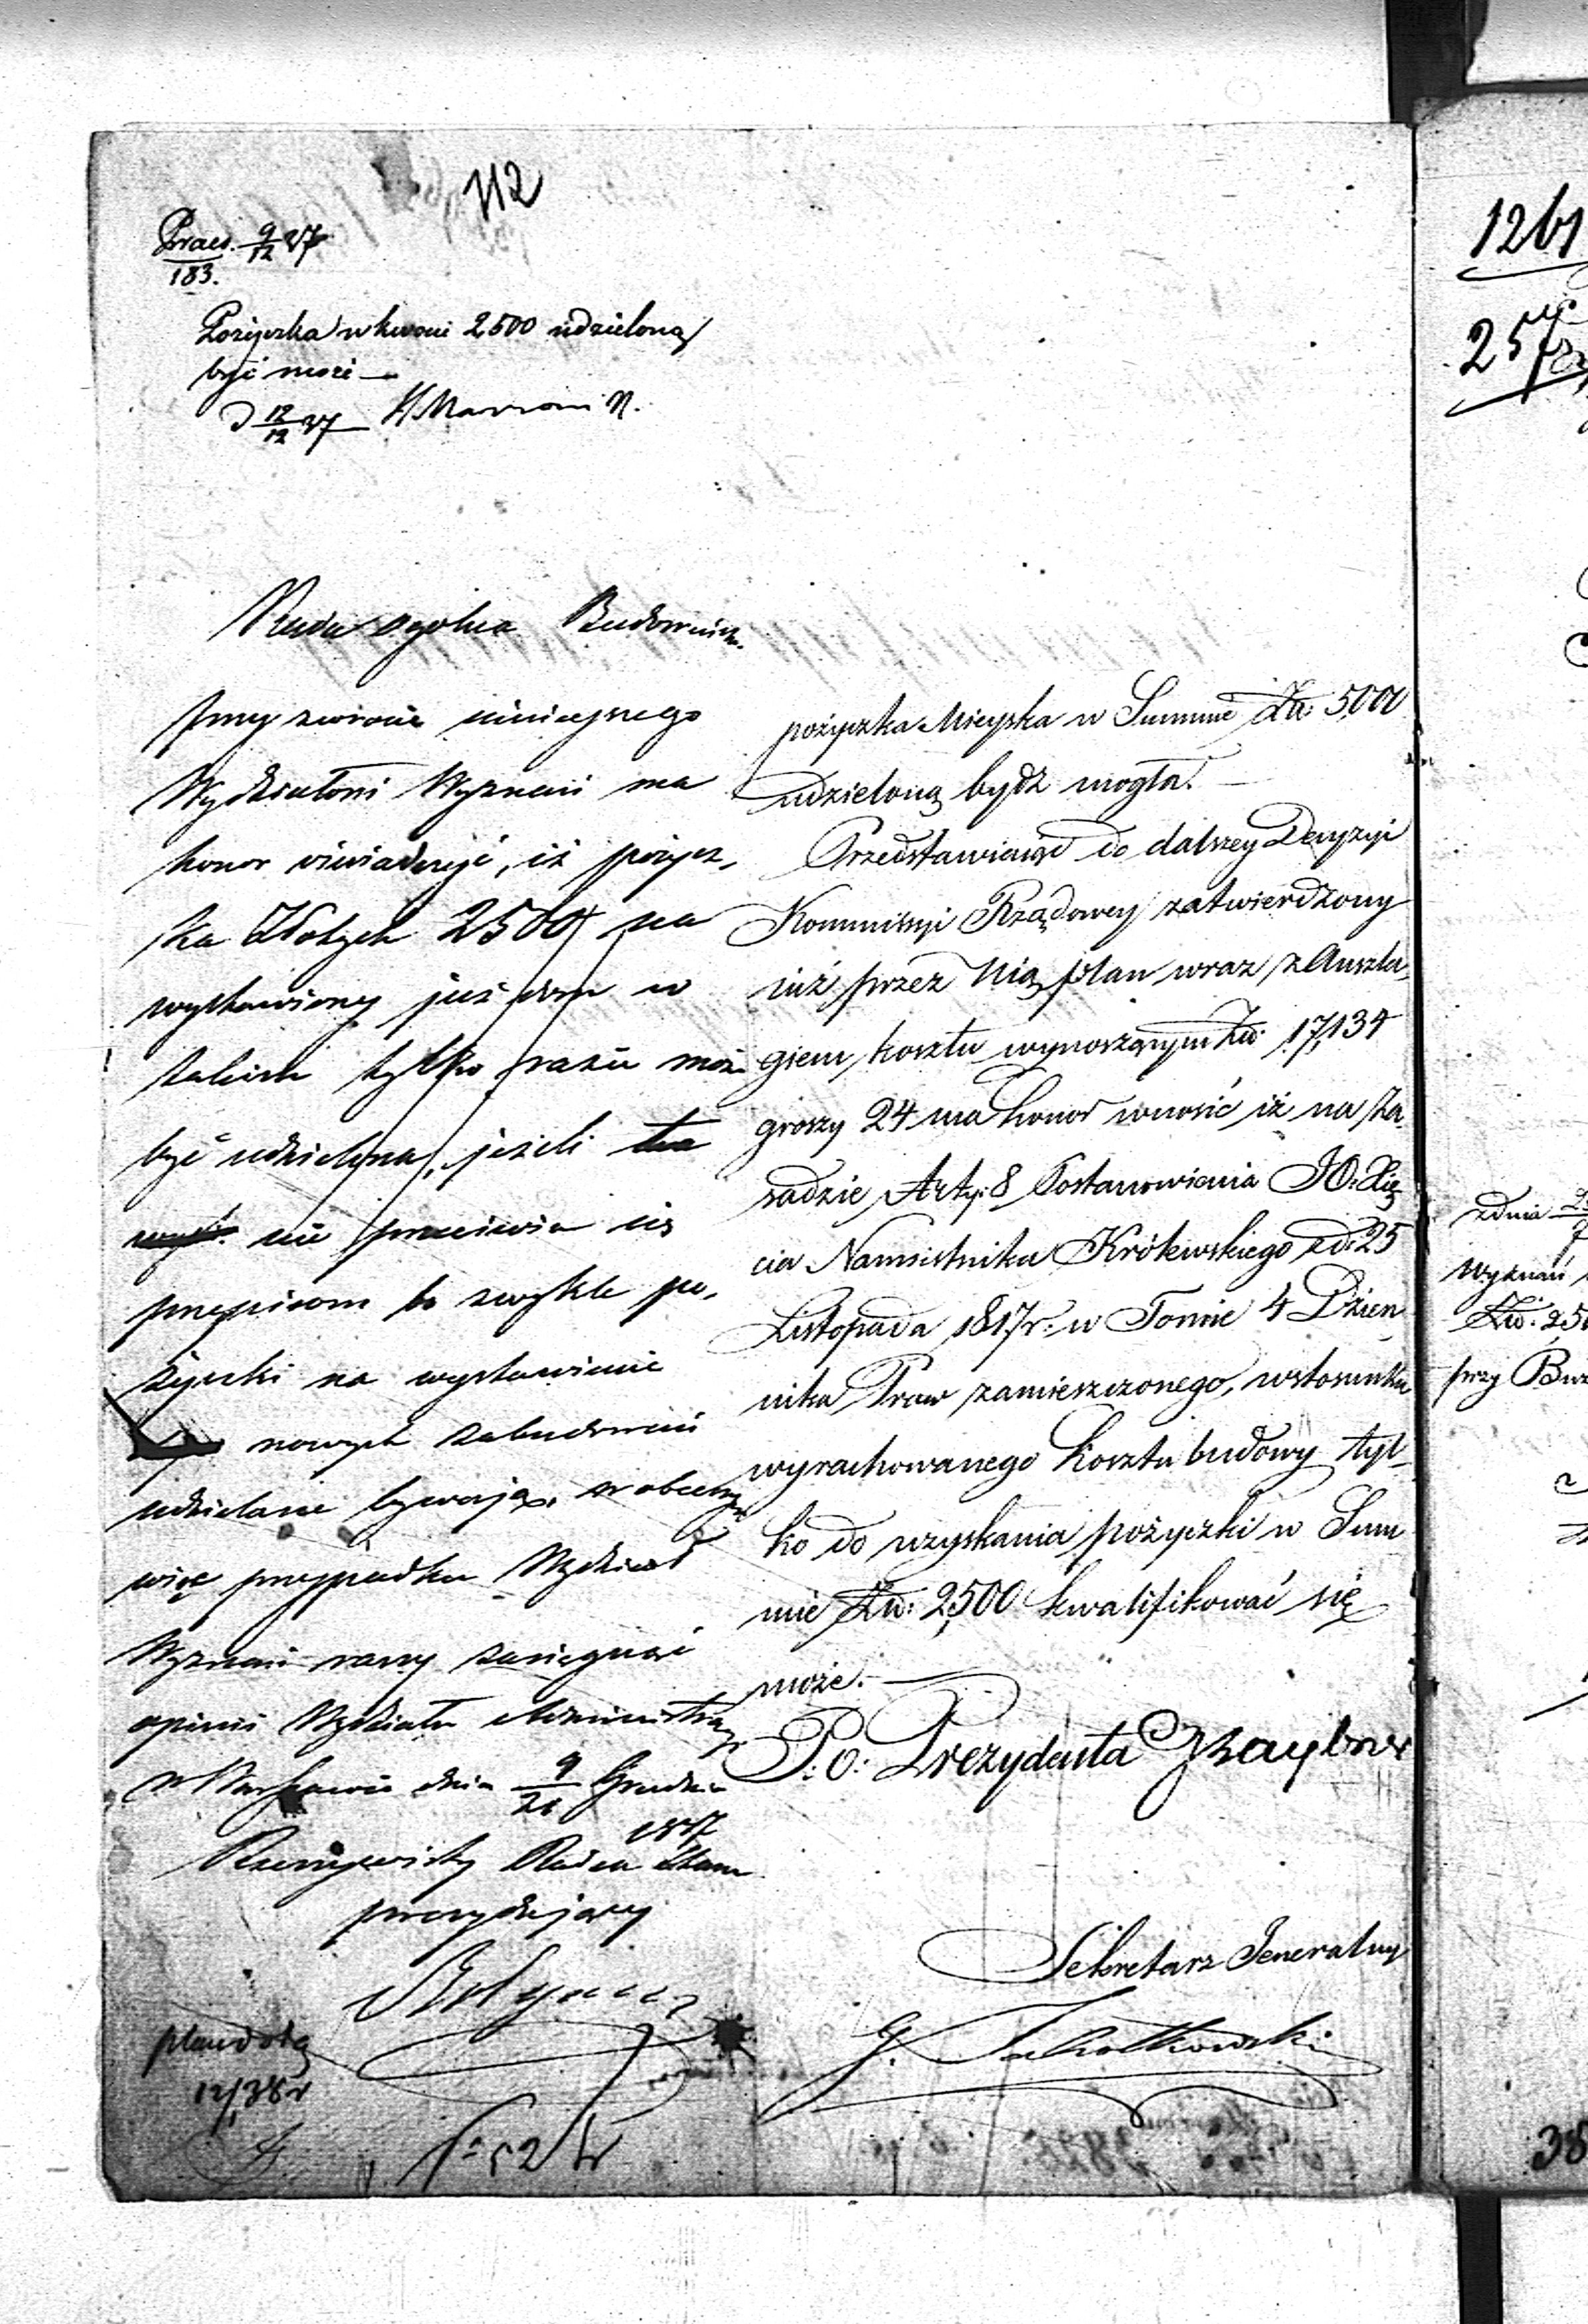 112
Praes. 9/12 37
183.
Pożyczka w kwocie 2500 udzieloną
być może —
D 12/12 37
Rada ogólna Budownicz.
przy zwrocie niniejszego
Wydziałowi Wyznań ma
honor oświadczyć, iż pożycz,
ka Złotych 2500 na
wystawiony już dom w
takim tylko razie może
być udzielona, jeżeli
nie przeciwia się
przepisom bo zwykle po,
życzki na wystawienie
nowych zabudowań
udzielane bywają. w obecnym
więc przypadku Wydział
Wyznań raczy zasięgnąć
opinii Wydziału Administracyj
w Warszawie dnia 9/21 Grudnia
1837
Rzeczywisty Radca Stanu
prezydujący
pożyczka Mieyska w Summie Zł: 5000
udzieloną bydź mogła. —
Przedstawiając do dalszey Decyzyi
Kommissyi Rządowey zatwierdzony
iuż przez Nią plan wraz z Anszla,
giem kosztu wynoszącym Zł: 17,134
groszy 24 ma honor wnosić iż na Za,
sadzie Arty: 8 Postanowienia JO. Xię
cia Namiestnika Królewskiego z d: 25
Listopada 1817 r: w Tomie 4 Dzien
nika Praw zamieszczonego, w stosunku
wyrachowanego kosztu budowy tyl-
ko do uzyskania pożyczki w Sum
mie Zł: 2,500 kwalifikować się
może. —
P: O: Prezydenta
Sekretarz Jeneralny
G.
12/38 r
1261
257
z dnia
Wyznań
Zł: 250
przy
38